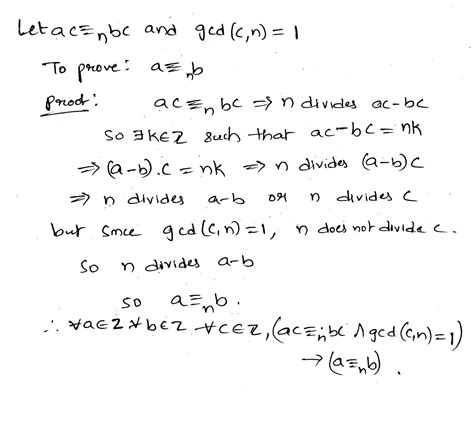 Let ac≡ₙbc and gcd(c,n) = 1
To prove: a≡ₙb
Proof: ac≡ₙbc ⇒ n divides ac-bc
So ∃k∈Z such that ac-bc = nk
⇒ (a-b).c = nk ⇒ n divides (a-b)c
⇒ n divides a-b or n divides c
but since gcd(c,n)=1, n does not divide c.
So n divides a-b
so a≡ₙb.
∴ ∀a∈Z ∀b∈Z ∀c∈Z, (ac≡ₙbc ∧ gcd(c,n)=1)
→ (a≡ₙb).